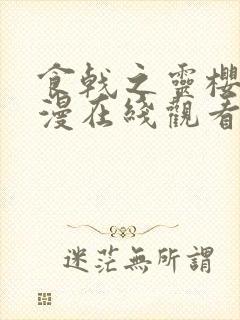 食戟之靈櫻
漫在綫觀看
迷茫無所謂